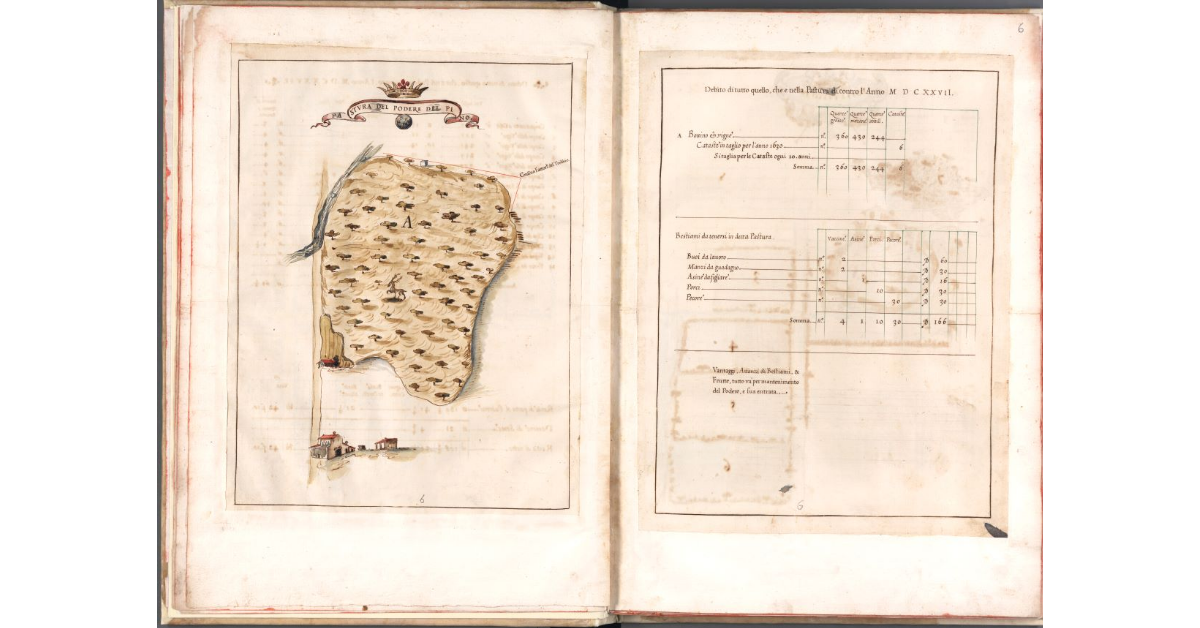 PASTVRA DEL PODERE DEL PINO
A
6
6
Debito di tutto quello, che e nella Pastura di contro l'Anno M D C XXVII.
Querce grosse Querce mezzane Querce Cataste
A Bosco n.º 360 430 244
Cataste in taglio per l'anno 1630 n.º 6
Si taglia per le Cataste ogni 10. anni
Somma n.º 360 430 244 6
Bestiami da tenersi in detta Pastura.
Vaccine Asine Porci Pecore
Buoi da lauoro n.º 2 60
Manzi da guadagno n.º 2 30
Asine da figliare n.º 1 16
Porci n.º 10 30
Pecore n.º 30 30
Somma n.º 4 1 10 30 166
Vantaggi, Auanzi di Bestiami, &
Frutte, tutto va per mantenimento
del Podere, e sua entrata
6